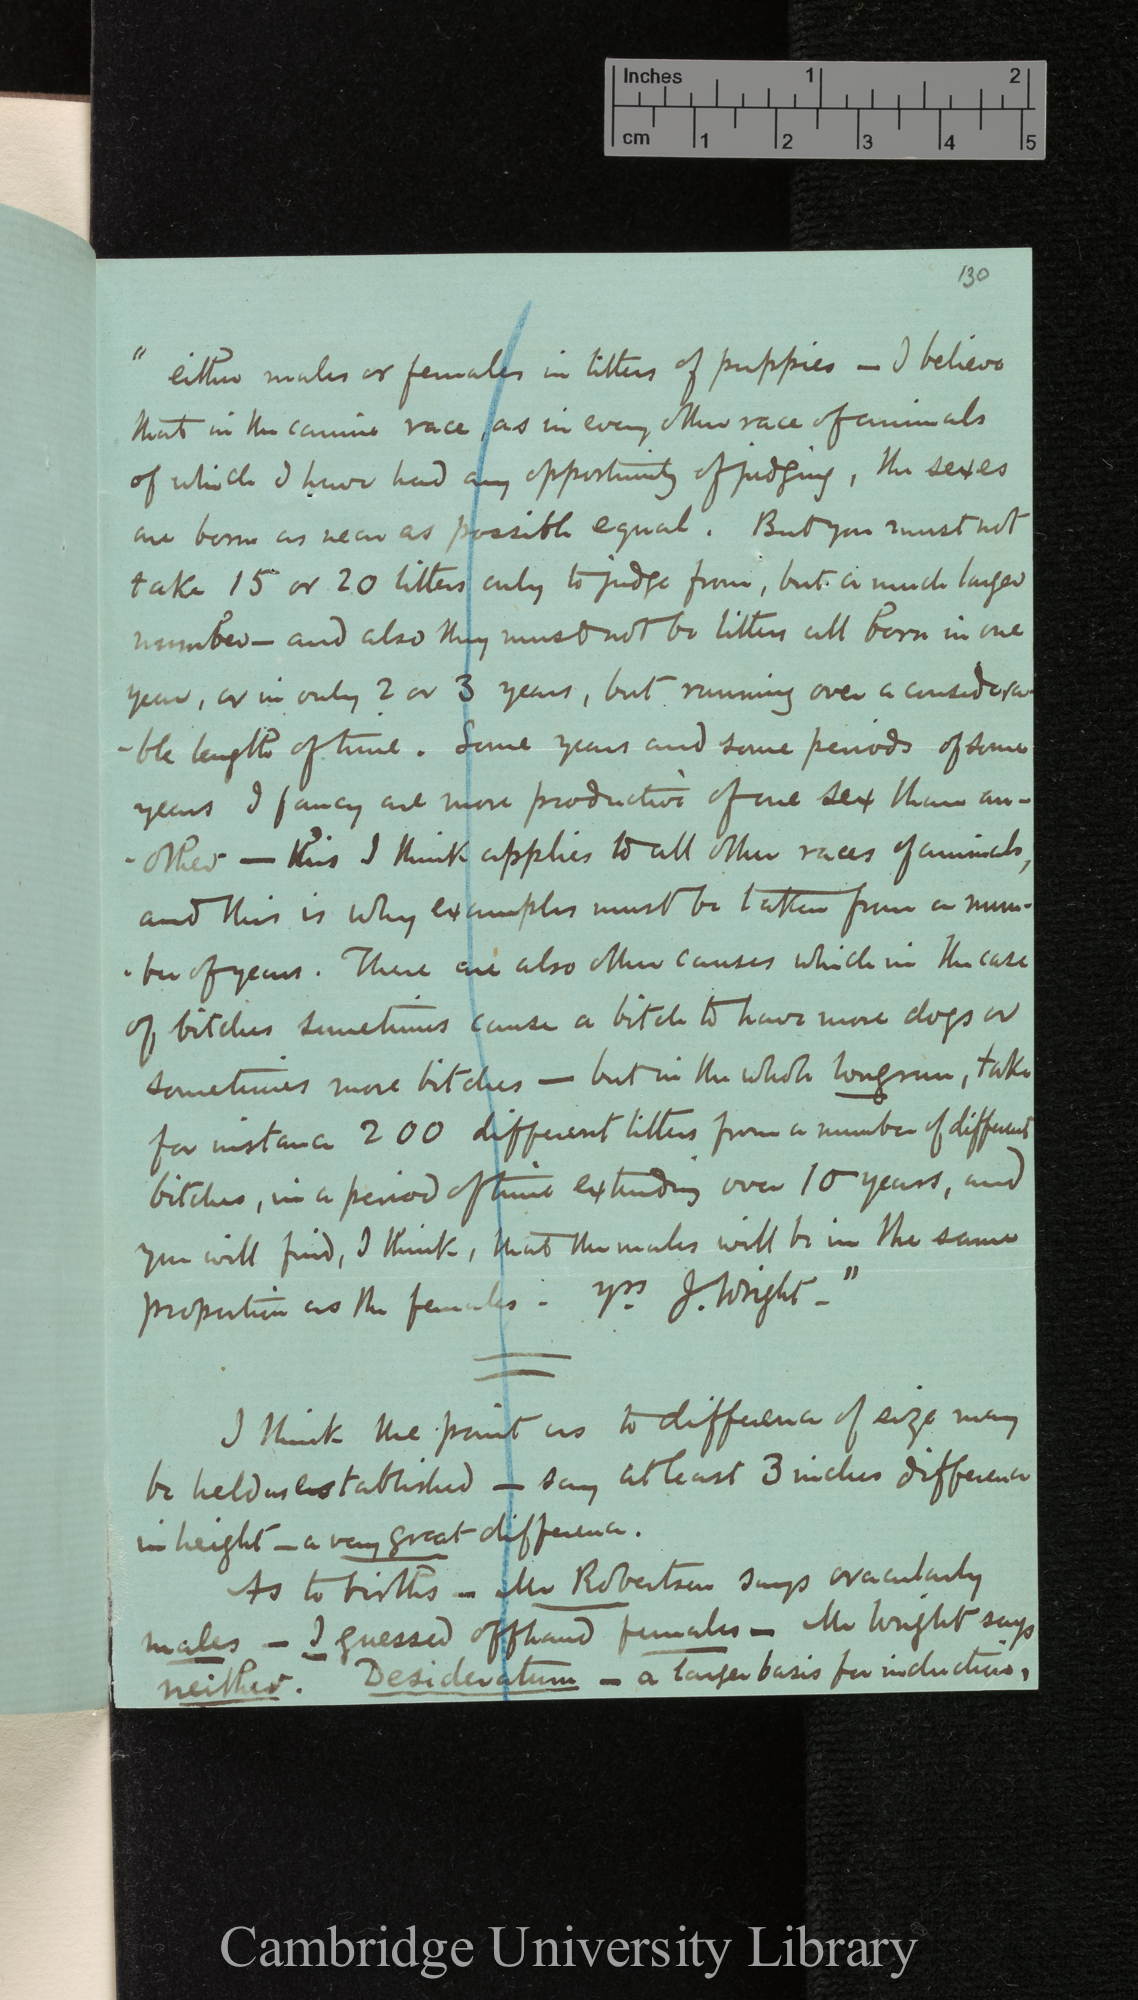 Inches 1 2
cm 1 2 3 4 5
130
" either males or females in litters of puppies — I believe
that in the canine race, as in every other race of animals
of which I have had any opportunity of judging, the sexes
are born as near as possible equal. But you must not
take 15 or 20 litters only to judge from, but a much larger
number — and also they must not be litters all born in one
year, or in only 2 or 3 years, but running over a considera-
-ble length of time. Some years and some periods of some
years I fancy are more productive of one sex than an-
-other — this I think applies to all other races of animals,
and this is why examples must be taken from a num-
-ber of years. There are also other causes which in the case
of bitches sometimes cause a bitch to have more dogs or
sometimes more bitches — but in the whole longrun, take
for instance 200 different litters from a number of different
bitches, in a period of time extending over 10 years, and
you will find, I think, that the males will be in the same
proportion as the females. yrs J. Wright — "
I think the point as to difference of size may
be held as established — say at least 3 inches difference
in height — a very great difference.
As to births — Mr Robertson says oracularly
males — I guessed offhand females — Mr Wright says
neither. Desideratum — a larger basis for induction,
Cambridge University Library